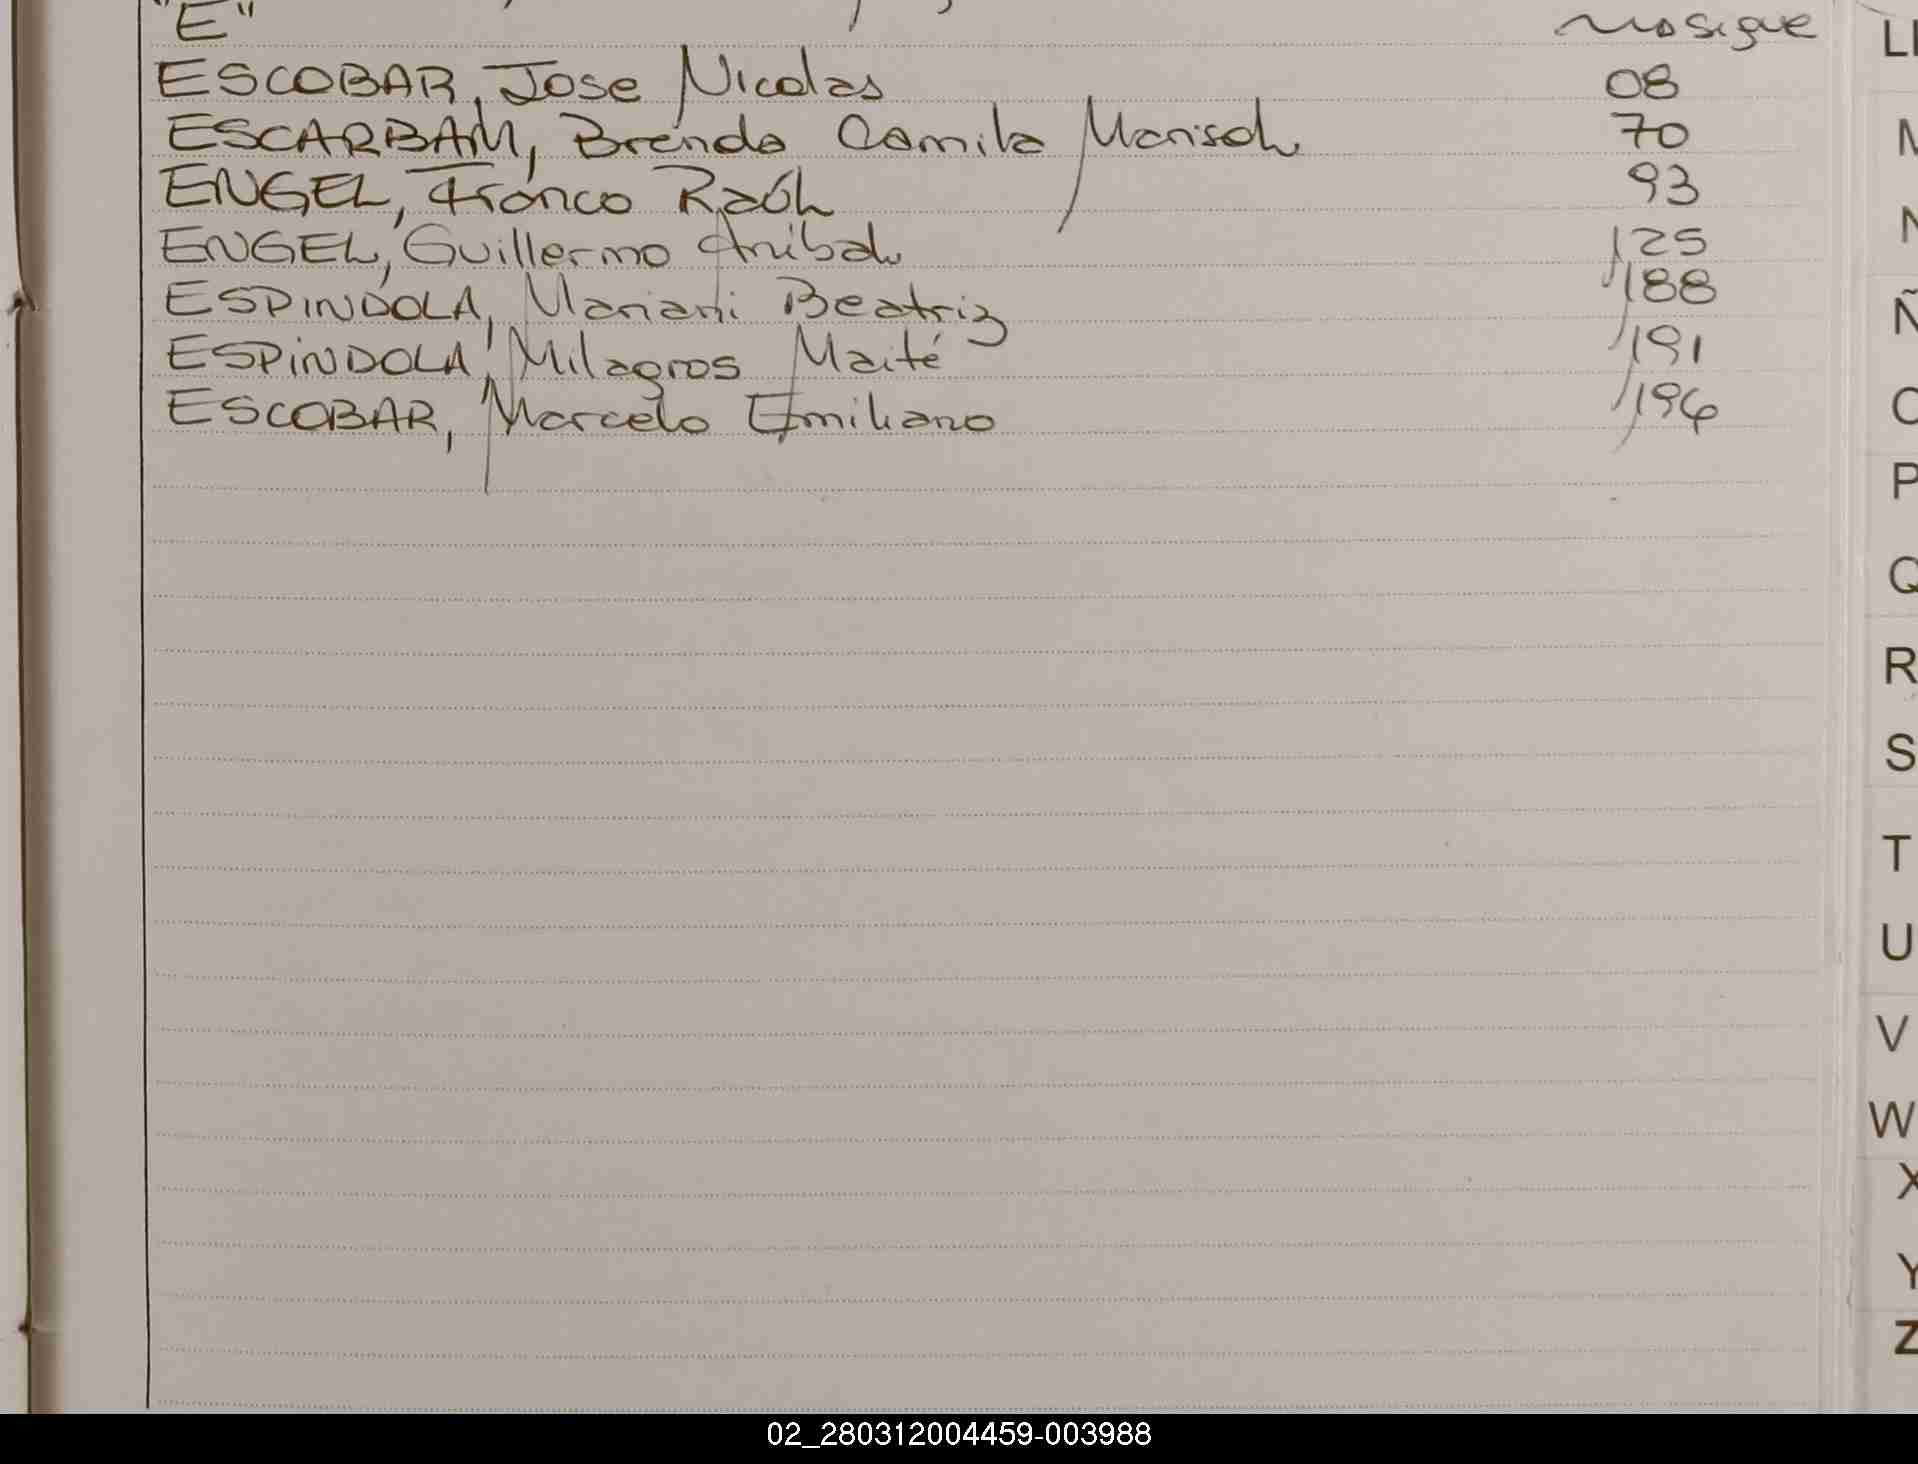 "E"
ESCOBAR, Jose Nicolas 08
ESCARBAM, Brenda Camila Marisol 70
ENGEL, Franco Raúl 93
ENGEL, Guillermo Anibal 125
ESPINDOLA, Mariani Beatriz 188
ESPINDOLA, Milagros Maité 191
ESCOBAR, Marcelo Emiliano 196
LL
M
N
Ñ
O
P
Q
R
S
T
U
V
W
X
Y
Z
02_280312004459-003988